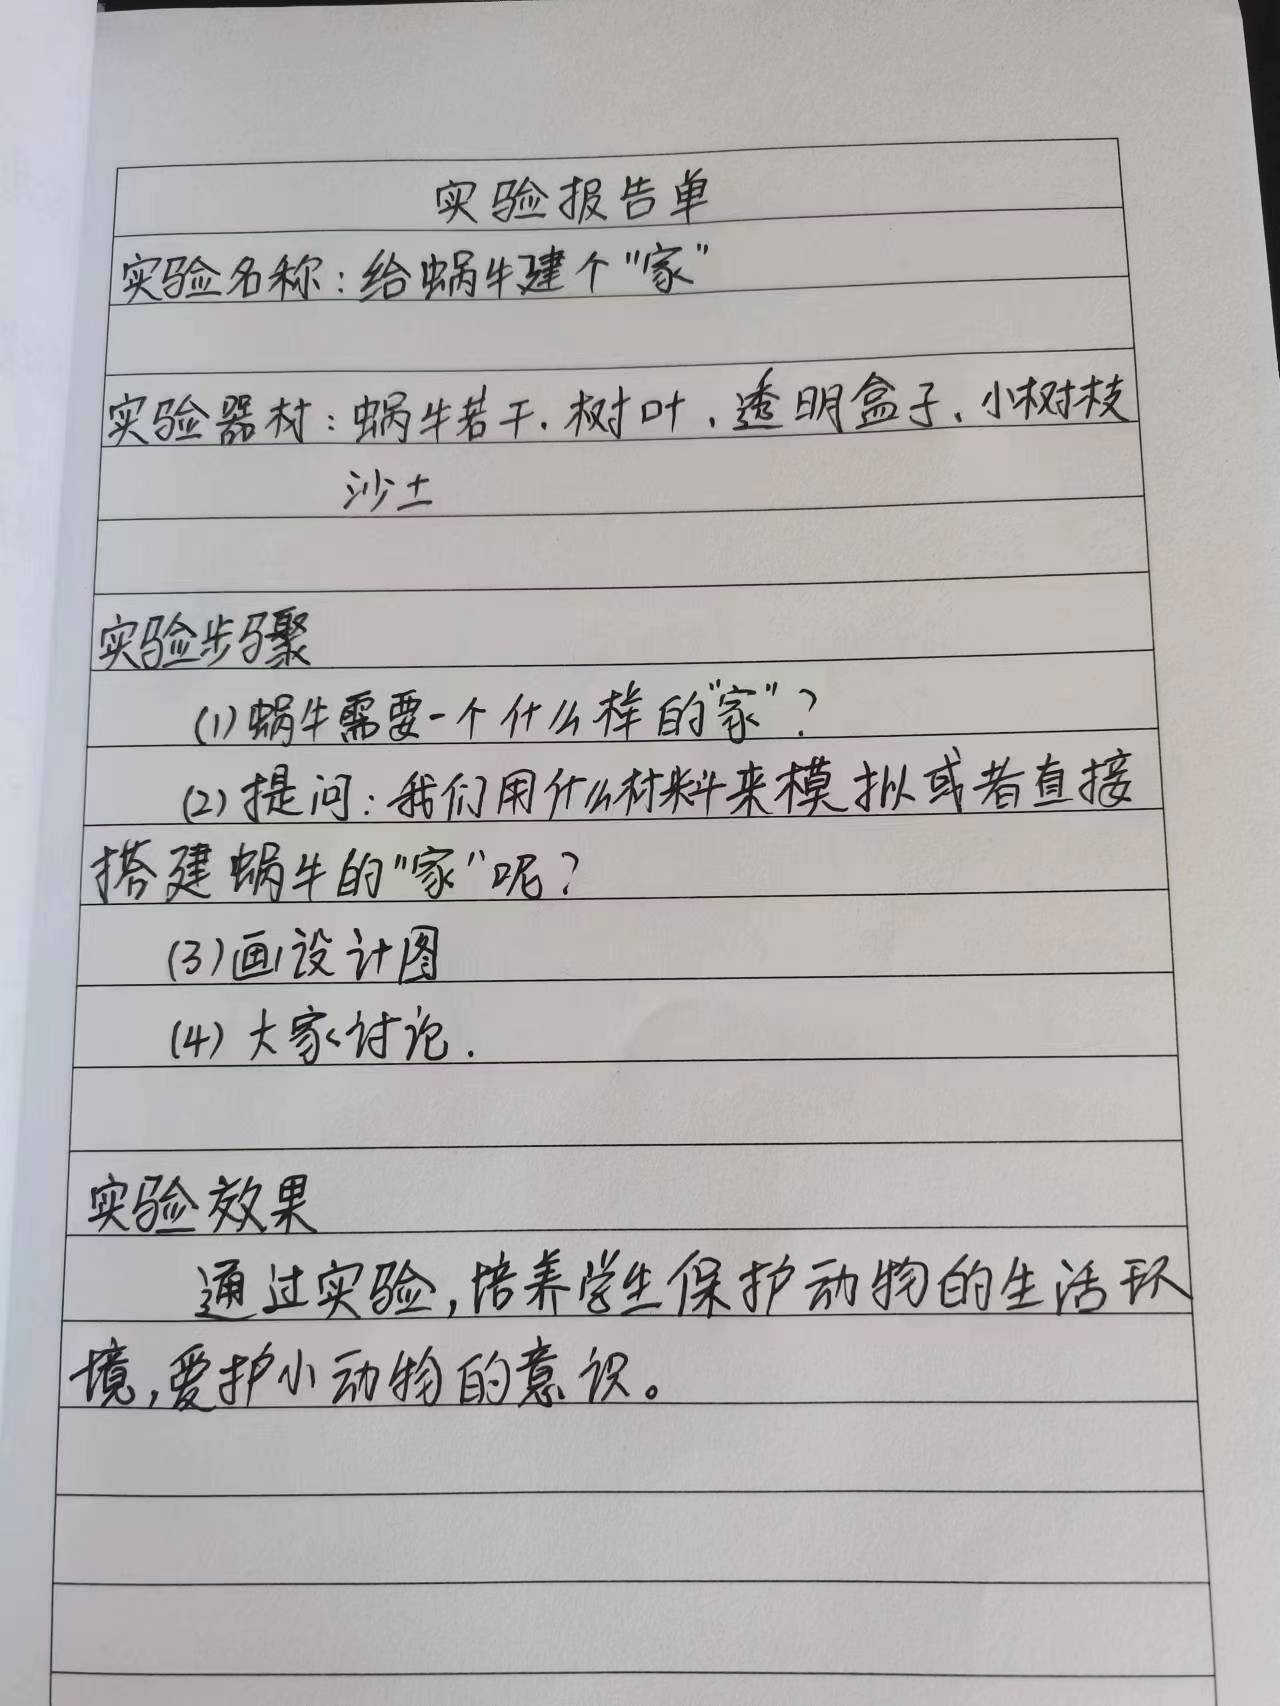 实验报告单
实验名称：给蜗牛建个"家"
实验器材：蜗牛若干、树叶、透明盒子、小树枝
沙土
实验步骤
(1)蜗牛需要一个什么样的"家"？
(2)提问：我们用什么材料来模拟或者直接
搭建蜗牛的"家"呢？
(3)画设计图
(4)大家讨论.
实验效果
通过实验,培养学生保护动物的生活环
境,爱护小动物的意识。